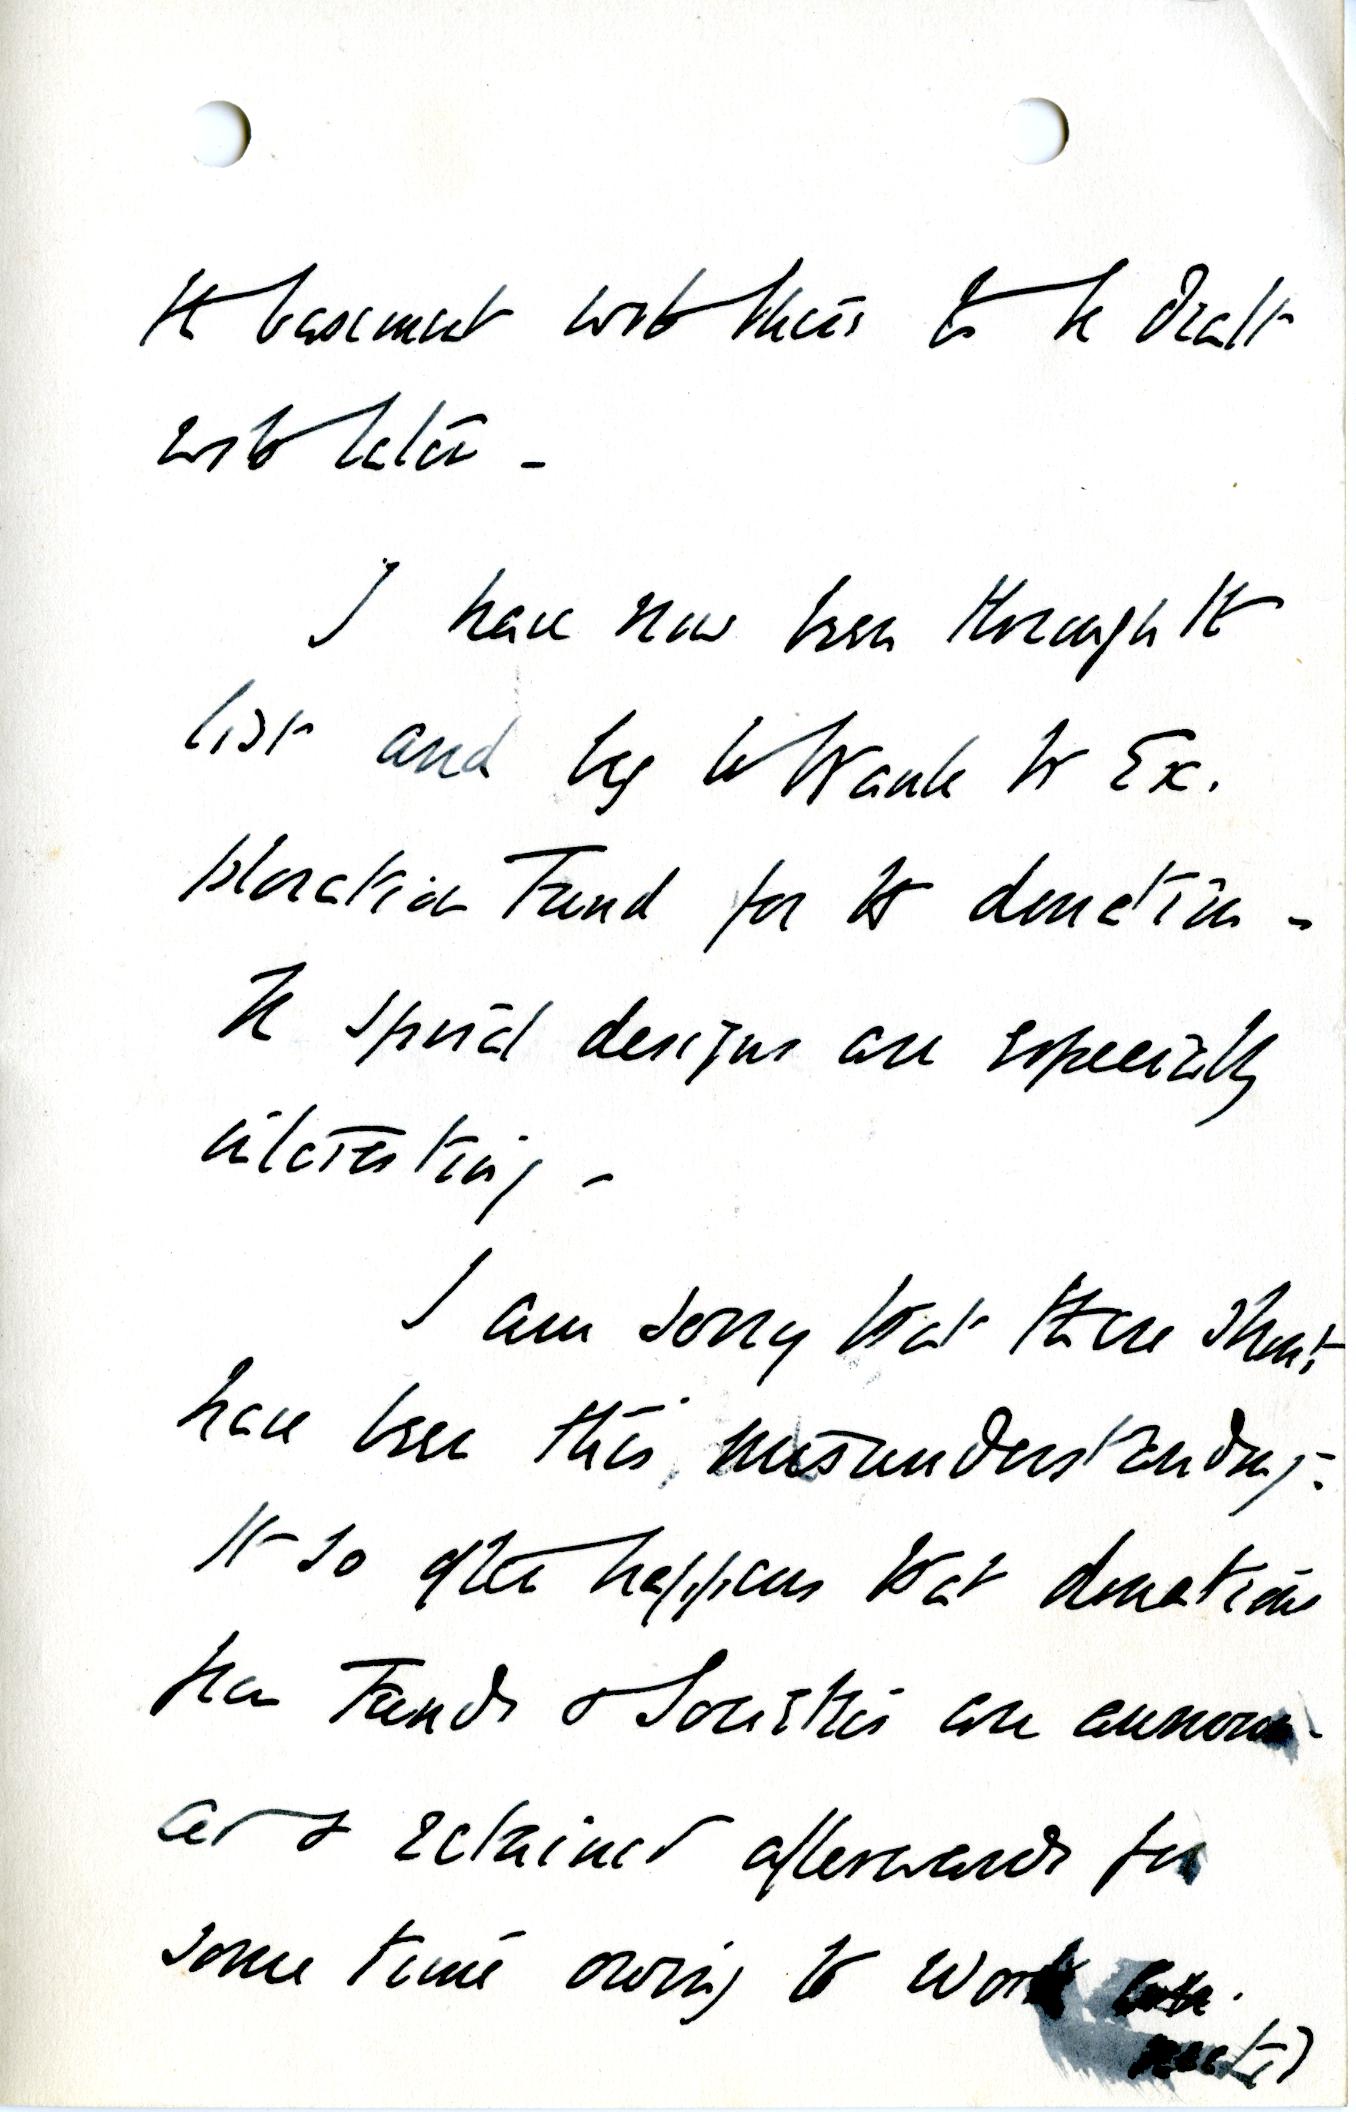 the basement with theirs to be dealt
with later -
I have now been through the
list and beg to thank the Ex.
ploration Fund for the donation -
The spiral designs are especially
interesting -
I am sorry that there should
have been this misunderstanding -
It so often happens that donations
from Funds & Societies are announ-
ced & retained afterwards for
some time owing to work con-
nected